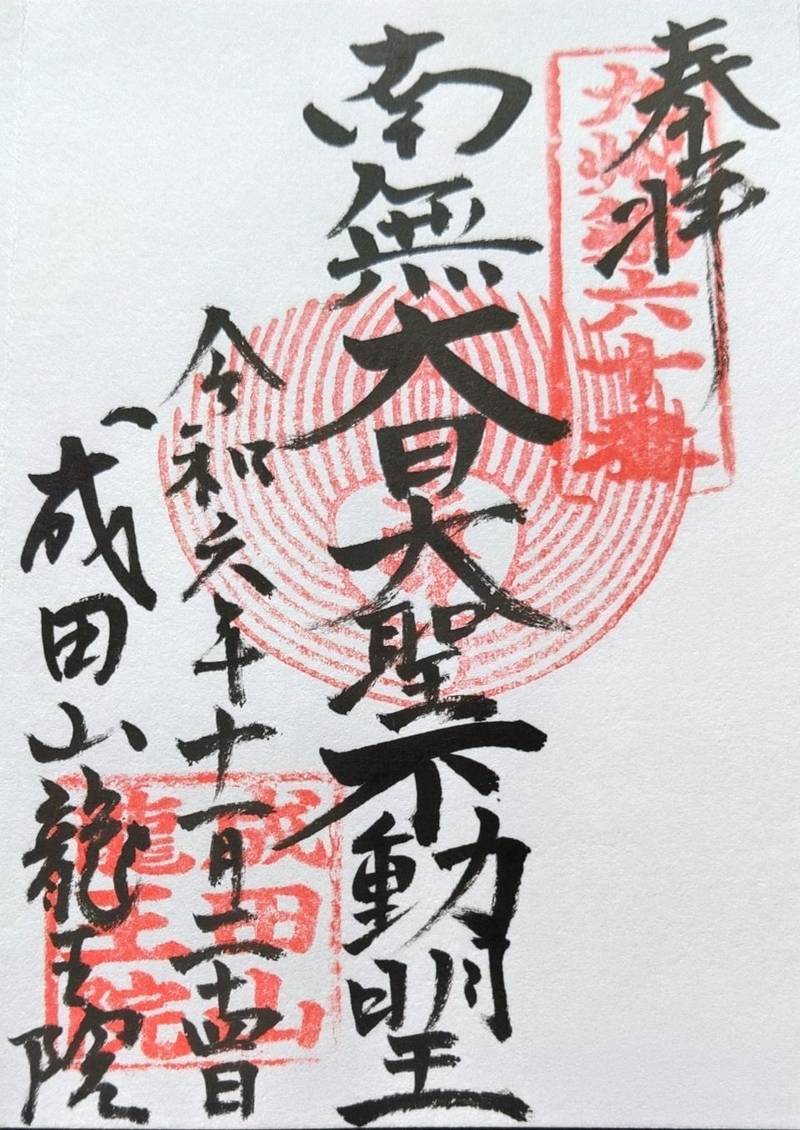 奉拝
九州第六十番
南無大日大聖不動明王
令和六年十一月二十四日
成田山龍王院
成田山
龍王院